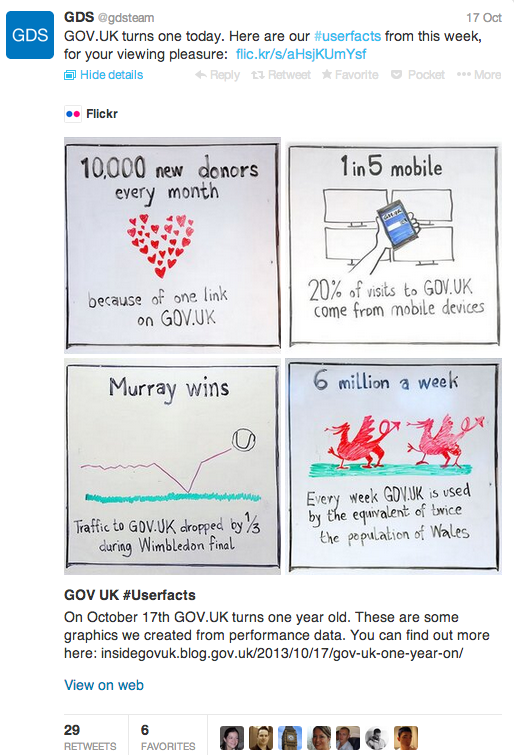 GDS
GDS @gdsteam
17 Oct
GOV.UK turns one today. Here are our #userfacts from this week,
for your viewing pleasure: flic.kr/s/aHsjKUmYsf
Hide details
Reply Retweet Favorite Pocket More
Flickr
10,000 new donors
every month
because of one link
on GOV.UK
1 in 5 mobile
GOV.UK
20% of visits to GOV.UK
come from mobile devices
Murray wins
Traffic to GOV.UK dropped by 1/3
during Wimbledon final
6 million a week
Every week GOV.UK is used
by the equivalent of twice
the population of Wales
GOV UK #Userfacts
On October 17th GOV.UK turns one year old. These are some
graphics we created from performance data. You can find out more
here: insidegovuk.blog.gov.uk/2013/10/17/gov-uk-one-year-on/
View on web
29
RETWEETS
6
FAVORITES